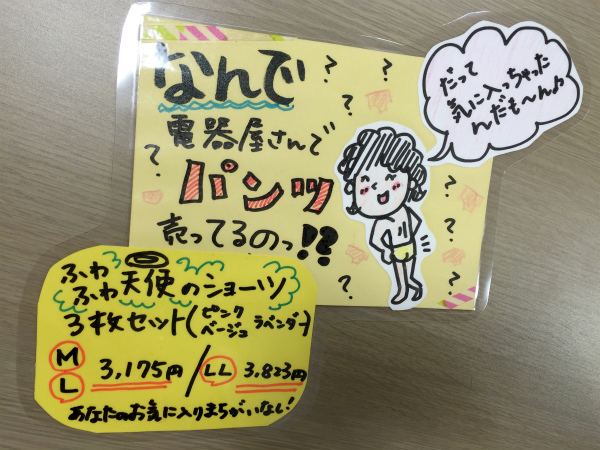 なんで
電器屋さんで
パンツ
売ってるのっ!?
だって
気に入っちゃった
んだも〜ん♪
ふわ
ふわ天使のショーツ
3枚セット(ピンク ベージュ ラベンダー)
M L 3,175円 / LL 3,823円
あなたのお気に入りまちがいない!